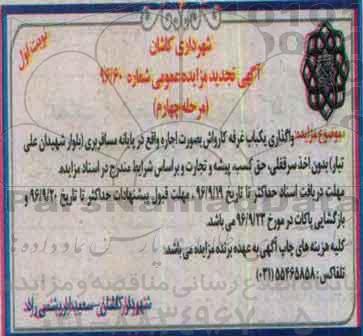 نوبت اول
شهرداری کاشان
آگهی تجدید مزایده عمومی شماره ۹۶/۶۰
(مرحله چهارم)
موضوع مزایده: واگذاری یکباب غرفه کارواش بصورت اجاره واقع در پایانه مسافربری (بلوار شهیدان علی
تبار) بدون اخذ سرقفلی، حق کسب، پیشه و تجارت و براساس شرایط مندرج در اسناد مزایده.
مهلت دریافت اسناد حداکثر تا تاریخ ۹۶/۹/۱۹ ، مهلت قبول پیشنهادات حداکثر تا تاریخ ۹۶/۹/۲۰ و
بازگشایی پاکات در مورخ ۹۶/۹/۲۳ می باشد.
کلیه هزینه های چاپ آگهی به عهده برنده مزایده می باشد.
تلفاکس: ۰۳۱۵۵۴۶۵۸۵۸
شهردار کاشان - سعید ابریشمی راد